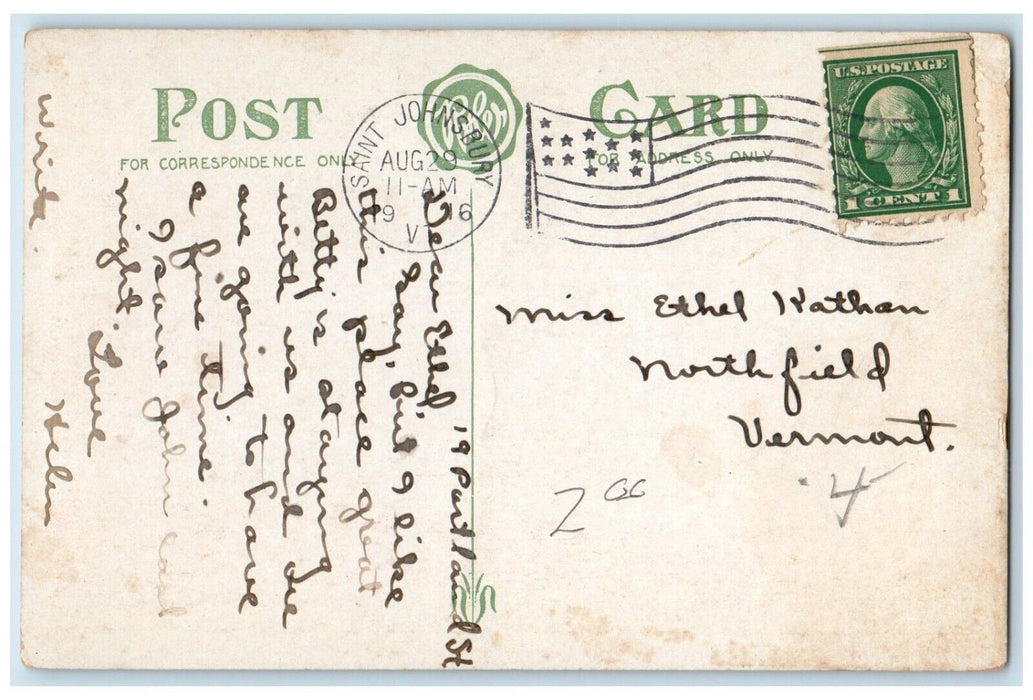 POST CARD
FOR CORRESPONDENCE ONLY
FOR ADDRESS ONLY
SAINT JOHNSBURY
AUG 29
11-AM
1916
VT
U.S. POSTAGE
1 CENT 1
Miss Ethel Kathan
Northfield
Vermont.
2 00
4
19 Portland St
Dear Ethel,
Say, but I like
this place great
Betty is staying
with us and we
are going to have
a fine time.
I saw John last
night. Love
Helen
Write.